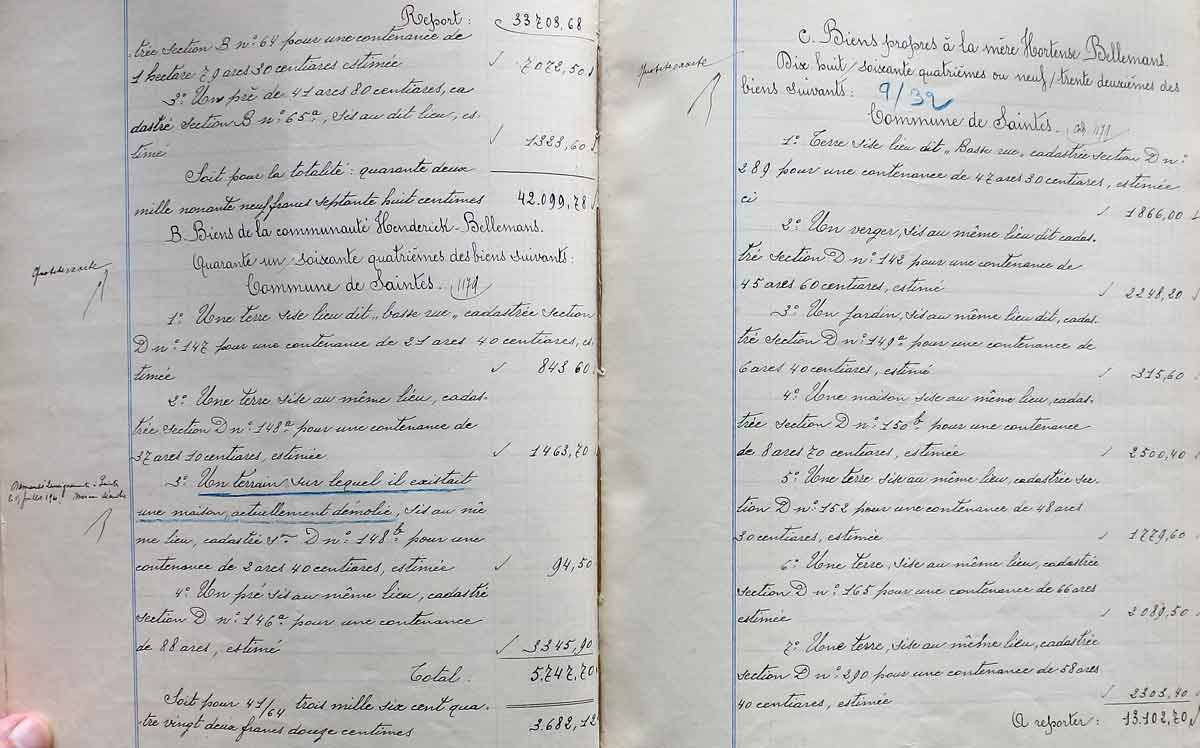 Report: 33703,68
trée section B n° 64 pour une contenance de
1 hectare 79 ares 30 centiares estimée 7072,50
3° Un pré de 41 ares 80 centiares, ca
dastré section B n° 65a, sis au dit lieu, es-
timé 1323,60
Soit pour la totalité: quarante deux
mille nonante neuf francs septante huit centimes 42.099,78
B. Biens de la communauté Henderick-Bellemans.
Quarante un soixante quatrièmes des biens suivants:
Commune de Saintes. 1179
1° Une terre sise lieu dit "basse rue" cadastrée section
D n° 147 pour une contenance de 21 ares 40 centiares, es-
timée 843,60
2° Une terre sise au même lieu, cadas-
trée section D n° 148a pour une contenance de
37 ares 10 centiares, estimée 1463,70
3° Un terrain sur lequel il existait
une maison, actuellement démolie, sis au mê
me lieu, cadastré son D n° 148b pour une
contenance de 2 ares 40 centiares, estimée 94,50
4° Un pré sis au même lieu, cadastré
section D n° 146a pour une contenance
de 88 ares, estimé 3345,90
Total: 5.747,70
Soit pour 41/64 trois mille six cent qua-
tre vingt deux francs douze centimes 3.682,12
C. Biens propres à la mère Hortense Bellemans.
Dix huit/soixante quatrièmes ou neuf/trente deuxièmes des
biens suivants: 9/32
Commune de Saintes. 1179
1° Terre sise lieu dit "Basse rue" cadastrée section D n°
289 pour une contenance de 47 ares 30 centiares, estimée
ci 1866,00
2° Un verger, sis au même lieu dit cadas-
tré section D n° 142 pour une contenance de
45 ares 60 centiares, estimé 2248,20
3° Un jardin, sis au même lieu dit, cadas-
tré section D n° 149a pour une contenance de
6 ares 40 centiares, estimé 315,60
4° Une maison sise au même lieu, cadas-
trée section D n° 150b pour une contenance
de 8 ares 70 centiares, estimée 2500,40
5° Une terre sise au même lieu, cadastrée sec-
tion D n° 152 pour une contenance de 48 ares
30 centiares, estimée 1779,60
6° Une terre, sise au même lieu, cadastrée
section D n° 165 pour une contenance de 66 ares
estimée 2089,50
7° Une terre, sise au même lieu, cadastrée
section D n° 290 pour une contenance de 58 ares
40 centiares, estimée 2303,40
A reporter: 13.102,70